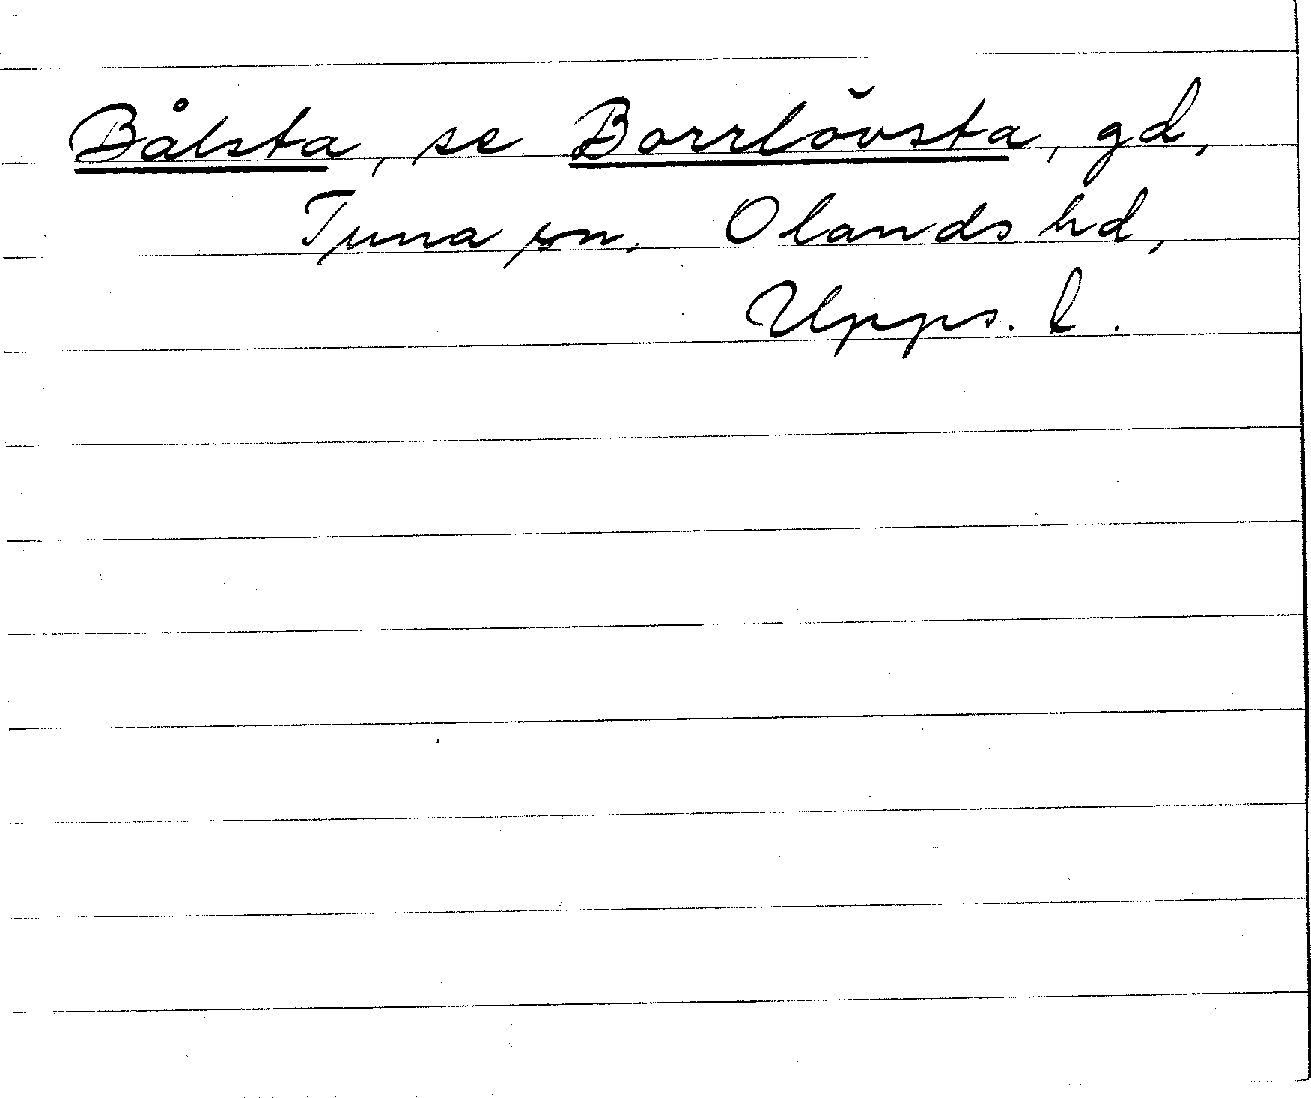 Bålsta, se Borrlövsta, gd,
Tuna sn, Olands hd,
Upps. l.